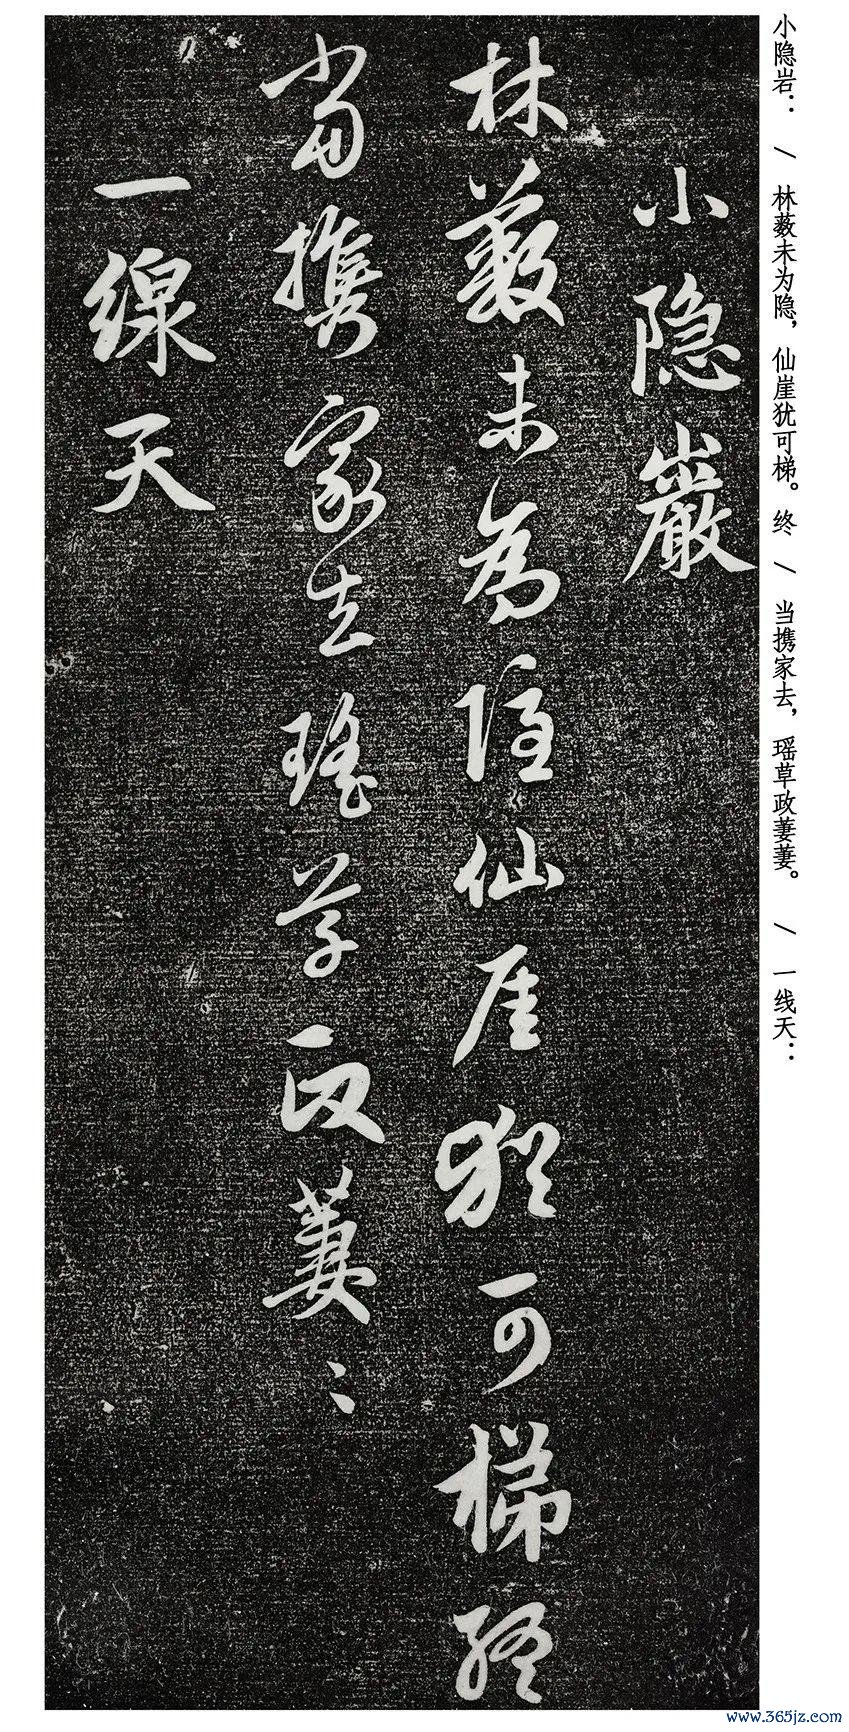 小隐岩： / 林薮未为隐，仙崖犹可梯。终 / 当携家去，瑶草政萋萋。 / 一线天：
小隐巖
林薮未為隐仙崖猶可梯終
當攜家去瑤草政萋〻
一線天
www.365jz.com